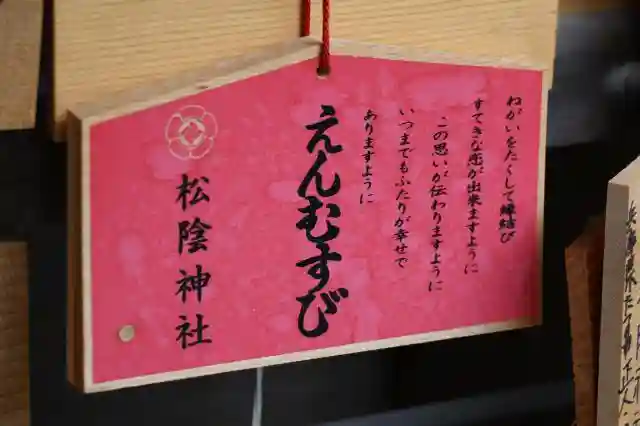 ねがいをたくして縁結び
すてきな恋が出来ますように
この思いが伝わりますように
いつまでもふたりが幸せで
ありますように
えんむすび
松陰神社